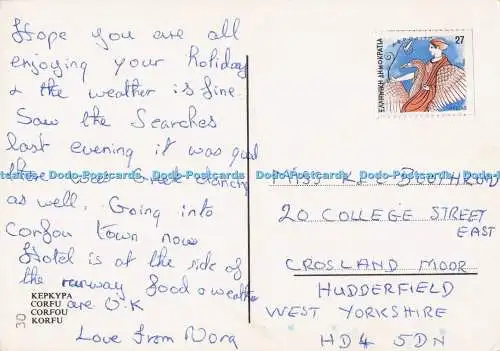 Hope you are all
enjoying your holiday
& the weather is fine.
Saw the Searches
last evening it was good
there was Greek dancing
as well. Going into
Corfou town now
Hotel is at the side of
the runway food & weather
are O.K
Love from Nora
ΚΕΡΚΥΡΑ
CORFU
CORFOU
KORFU
30
27
ΕΛΛΗΝΙΚΗ ΔΗΜΟΚΡΑΤΙΑ
MISS
20 COLLEGE STREET
EAST
CROSLAND MOOR
HUDDERFIELD
WEST YORKSHIRE
HD4 5DN
Dodo-Postcards Dodo-Postcards Dodo-Postcards Dodo-Postcards Dodo-Postcards